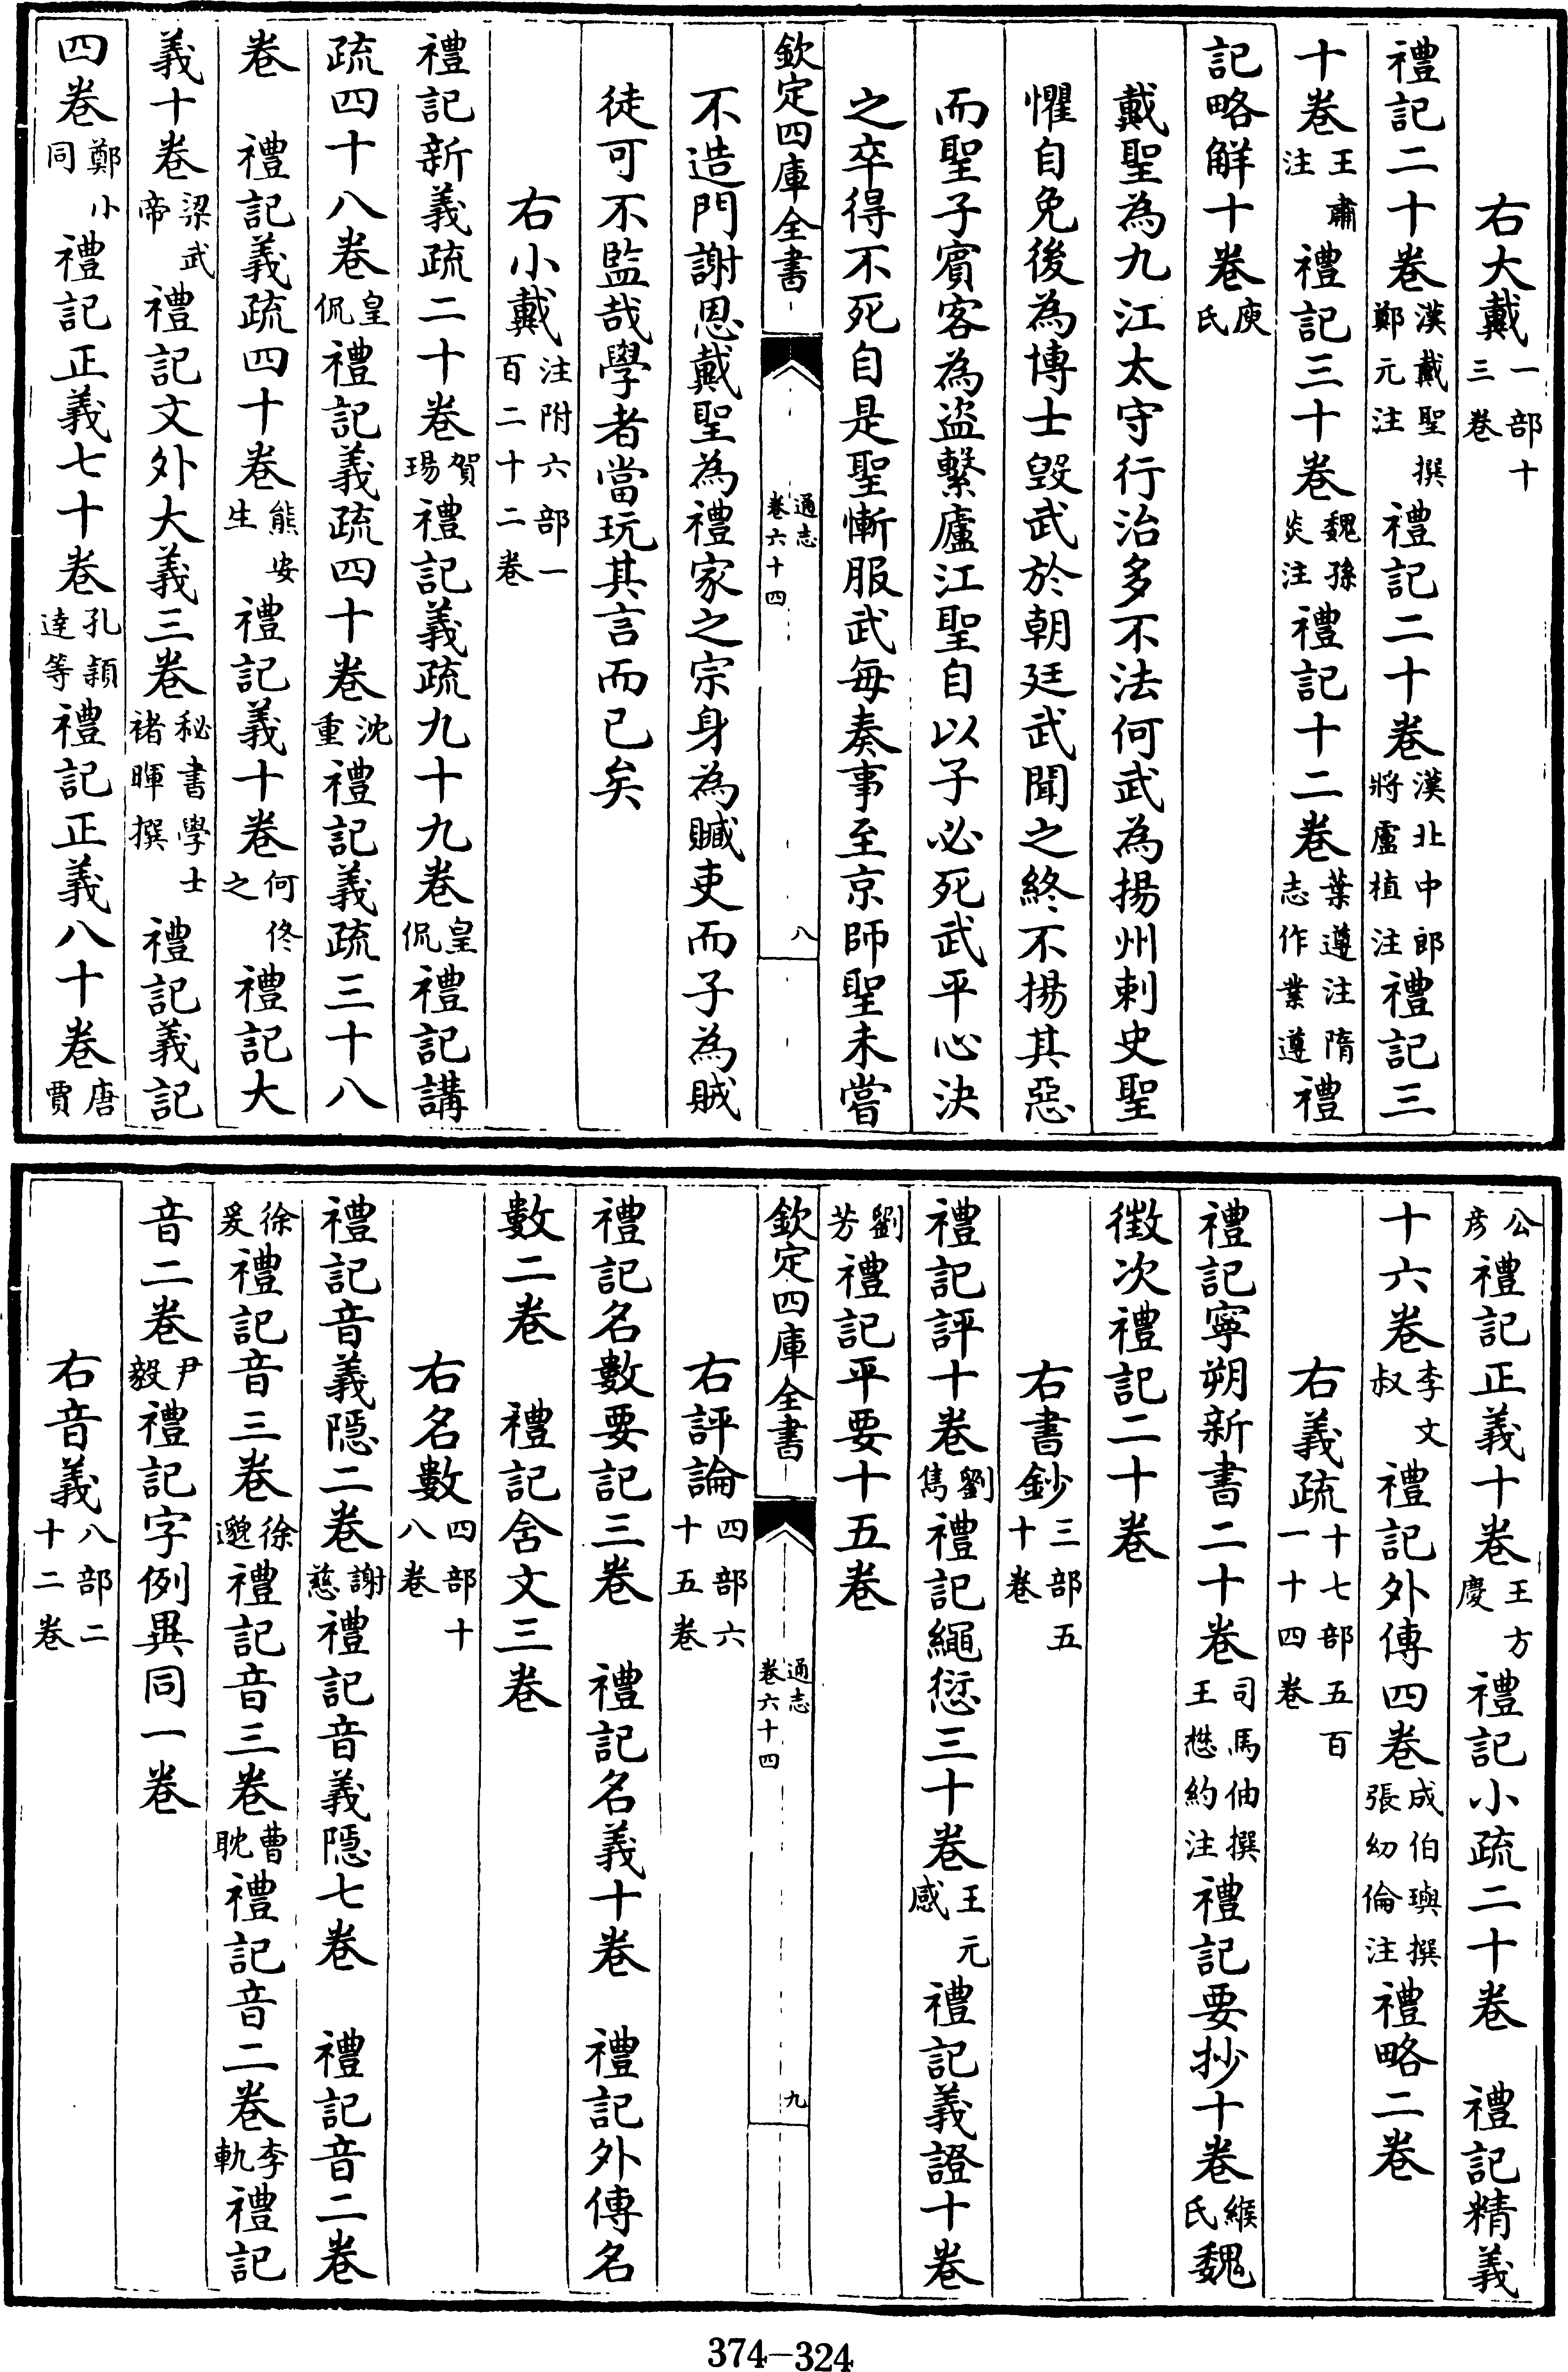 右大戴一部十三卷
禮記二十卷漢戴聖撰鄭元注禮記二十卷漢北中郎將盧植注禮記三
十卷王肅注禮記三十卷魏孫炎注禮記十二卷葉遵注隋志作業遵禮
記略解十卷庾氏
戴聖為九江太守行治多不法何武為揚州刺史聖
懼自免後為博士毀武於朝廷武聞之終不揚其惡
而聖子賓客為盜繫廬江聖自以子必死武平心決
之卒得不死自是聖慚服武每奏事至京師聖未嘗
欽定四庫全書 通志卷六十四 八
不造門謝恩戴聖為禮家之宗身為贓吏而子為賊
徒可不監哉學者當玩其言而已矣
右小戴注附六部一百二十二卷
禮記新義疏二十卷賀瑒禮記義疏九十九卷皇侃禮記講
疏四十八卷皇侃禮記義疏四十卷沈重禮記義疏三十八
卷 禮記義疏四十卷熊安生禮記義十卷何佟之禮記大
義十卷梁武帝禮記文外大義三卷秘書學士褚暉撰禮記義記
四卷鄭小同禮記正義七十卷孔穎達等禮記正義八十卷唐賈
公彦禮記正義十卷王方慶禮記小疏二十卷 禮記精義
十六卷李文叔禮記外傳四卷成伯璵撰張幼倫注禮略二卷
右義疏十七部五百一十四卷
禮記寧朔新書二十卷司馬伷撰王懋約注禮記要抄十卷緱氏魏
徵次禮記二十卷
右書鈔三部五十卷
禮記評十卷劉雋禮記繩愆三十卷王元感禮記義證十卷
劉芳禮記平要十五卷
欽定四庫全書 通志卷六十四 九
右評論四部六十五卷
禮記名數要記三卷 禮記名義十卷 禮記外傳名
數二卷 禮記含文三卷
右名數四部十八卷
禮記音義隱二卷謝慈禮記音義隱七卷 禮記音二卷
徐爰禮記音三卷徐邈禮記音三卷曹耽禮記音二卷李軌禮記
音二卷尹毅禮記字例異同一卷
右音義八部二十二卷
374-324